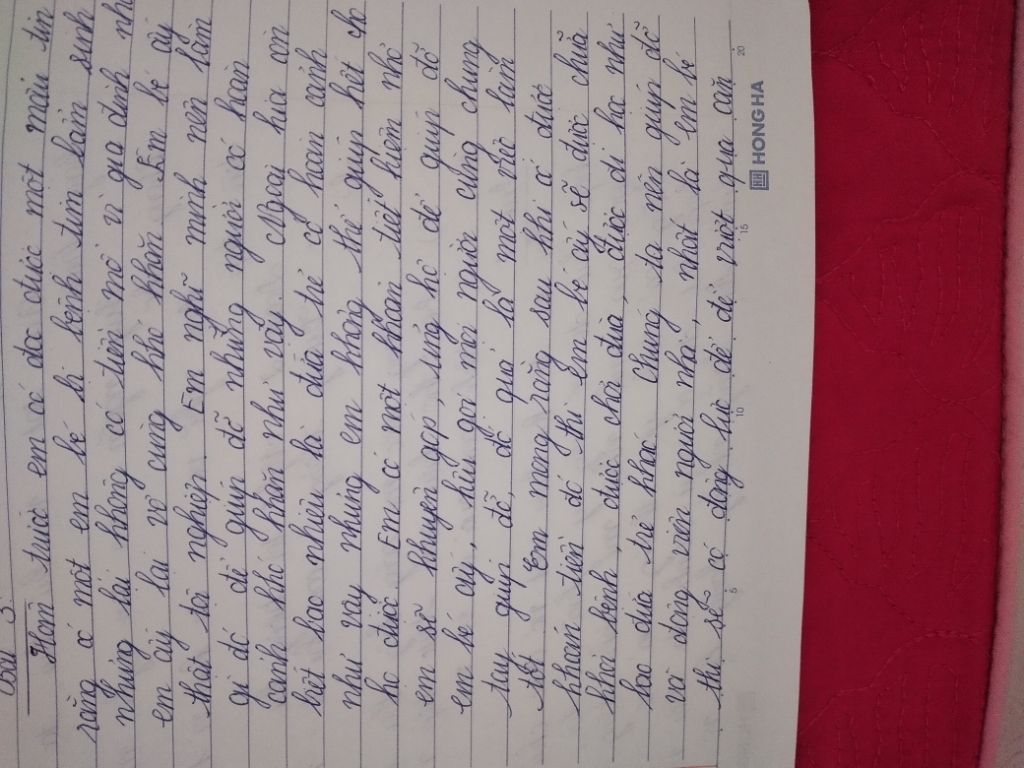 Bài 3:
Hôm trước em có đọc được một mẩu tin
rằng có một em bé bị bệnh tim bẩm sinh
nhưng lại không có tiền mổ vì gia đình nhà
em ấy lại vô cùng khó khăn. Em bé ấy
thật tội nghiệp. Em nghĩ mình nên làm
gì đó để giúp đỡ những người có hoàn
cảnh khó khăn như vậy. Ngoài kia còn
biết bao nhiêu là đứa trẻ có hoàn cảnh
như vậy nhưng em không thể giúp hết cho
họ được. Em có một khoản tiết kiệm nhỏ
em sẽ khuyên góp, ủng hộ để giúp đỡ
em bé ấy, kêu gọi mọi người cùng chung
tay giúp đỡ, đó quả là một việc làm
tốt. Em mong rằng sau khi có được
khoản tiền đó thì em bé ấy sẽ được chữa
khỏi bệnh, được chơi đùa, được đi học như
bao đứa trẻ khác. Chúng ta nên giúp đỡ
và động viên người nhà, nhất là em bé
thì sẽ có động lực để để vượt qua căn
5 10 15 20
HONG HA